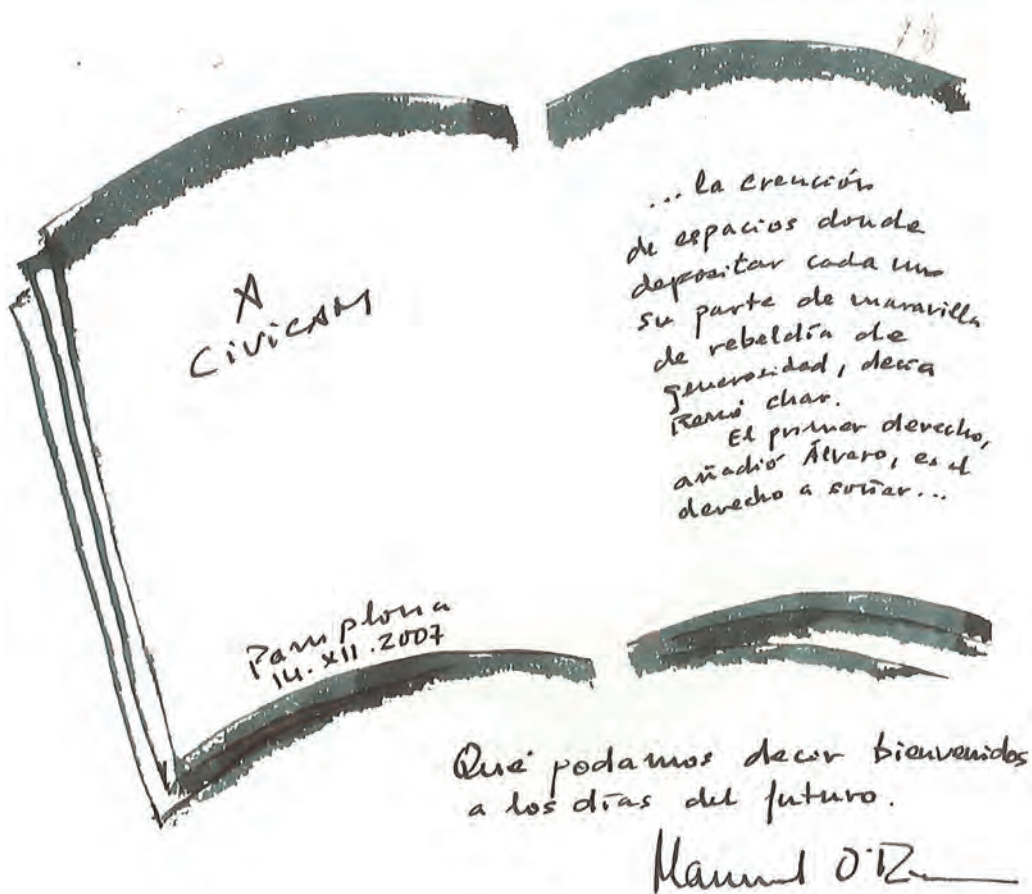 A
CIVICAM
Pamplona
14.XII.2007
... la creación
de espacios donde
depositar cada uno
su parte de maravilla
de rebeldía de
generosidad, decía
René Char.
El primer derecho,
añadió Álvaro, es el
derecho a soñar...
Qué podamos decir bienvenidos
a los días del futuro.
Manuel